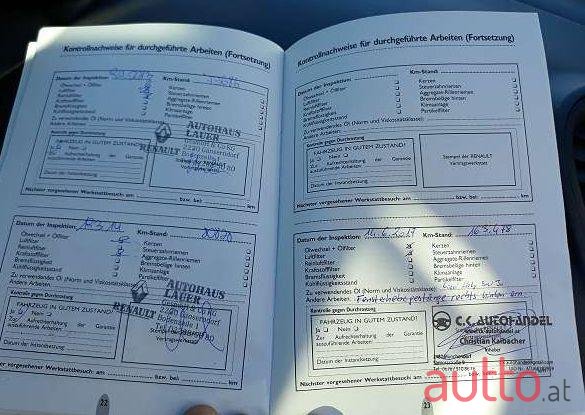 Kontrollnachweise für durchgeführte Arbeiten (Fortsetzung)
Datum der Inspektion:
Km-Stand:
Ölwechsel + Ölfilter
Luftfilter
Reinluftfilter
Kraftstofffilter
Bremsflüssigkeit
Kühlflüssigkeitsstand
Kerzen
Steuerzahnriemen
Aggregate-Rillenriemen
Bremsbeläge hinten
Klimaanlage
Partikelfilter
Zu verwendendes Öl (Norm und Viskositätsklasse):
Andere Arbeiten:
Kontrolle gegen Durchrostung
FAHRZEUG IN GUTEM ZUSTAND!
Ja Nein
Zur Aufrechterhaltung der Garantie auszuführende Arbeiten:
Datum der Instandsetzung:
AUTOHAUS
LAUER
GmbH & Co KG
2230 Gänserndorf
RENAULT
Nächster vorgesehener Werkstattbesuch: am bzw. bei: km
Datum der Inspektion:
Km-Stand:
Ölwechsel + Ölfilter
Luftfilter
Reinluftfilter
Kraftstofffilter
Bremsflüssigkeit
Kühlflüssigkeitsstand
Kerzen
Steuerzahnriemen
Aggregate-Rillenriemen
Bremsbeläge hinten
Klimaanlage
Partikelfilter
Zu verwendendes Öl (Norm und Viskositätsklasse):
Andere Arbeiten:
Kontrolle gegen Durchrostung
FAHRZEUG IN GUTEM ZUSTAND!
Ja Nein
Zur Aufrechterhaltung der Garantie auszuführende Arbeiten:
Datum der Instandsetzung:
AUTOHAUS
LAUER
RENAULT
Vertragswerkstatt
Nächster vorgesehener Werkstattbesuch: am bzw. bei: km
22
Kontrollnachweise für durchgeführte Arbeiten (Fortsetzung)
Datum der Inspektion:
Km-Stand:
Ölwechsel + Ölfilter
Luftfilter
Reinluftfilter
Kraftstofffilter
Bremsflüssigkeit
Kühlflüssigkeitsstand
Kerzen
Steuerzahnriemen
Aggregate-Rillenriemen
Bremsbeläge hinten
Klimaanlage
Partikelfilter
Zu verwendendes Öl (Norm und Viskositätsklasse):
Andere Arbeiten:
Kontrolle gegen Durchrostung
FAHRZEUG IN GUTEM ZUSTAND!
Ja Nein
Zur Aufrechterhaltung der Garantie auszuführende Arbeiten:
Datum der Instandsetzung:
Stempel der RENAULT
Vertragswerkstatt
Nächster vorgesehener Werkstattbesuch: am bzw. bei: km
Datum der Inspektion: 14.6.2019 Km-Stand: 163.478
Ölwechsel + Ölfilter
Luftfilter
Reinluftfilter
Kraftstofffilter
Bremsflüssigkeit
Kühlflüssigkeitsstand
Kerzen
Steuerzahnriemen
Aggregate-Rillenriemen
Bremsbeläge hinten
Klimaanlage
Partikelfilter
Zu verwendendes Öl (Norm und Viskositätsklasse):
Andere Arbeiten: rechts hinten ern.
Kontrolle gegen Durchrostung
FAHRZEUG IN GUTEM ZUSTAND!
Ja Nein
Zur Aufrechterhaltung der Garantie auszuführende Arbeiten:
Datum der Instandsetzung:
C.C. AUTOHANDEL
Christian Kaibacher
Inhaber
Nächster vorgesehener Werkstattbesuch: am
23
autto.at